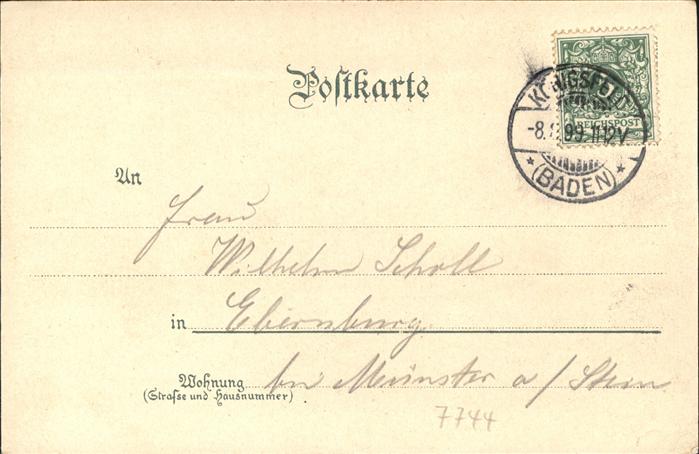 Postkarte
KÖNIGSFELD
REICHSPOST
11-12V
(BADEN)
An
Frau
Wilhelm Scholl
in Ebernburg
Wohnung bei Münster a/Stein
(Straße und Hausnummer)
7744